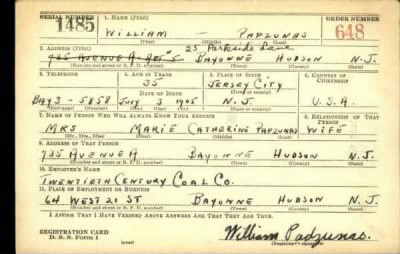 SERIAL NUMBER 1. NAME (Print) ORDER NUMBER
1485 WILLIAM — PAPZUNAS 648
(First) (Middle) (Last)
2. ADDRESS (Print) 25 Parkside Lane
735 AVENUE A APT 5 BAYONNE HUDSON N.J.
(Number and street or R. F. D. number) (Town) (County) (State)
3. TELEPHONE 4. AGE IN YEARS 5. PLACE OF BIRTH 6. COUNTRY OF CITIZENSHIP
35 JERSEY CITY
DATE OF BIRTH (Town or county)
BAY 3-5858 JULY 3 1905 N.J. U.S.A.
(Exchange) (Number) (Mo.) (Day) (Yr.) (State or country)
7. NAME OF PERSON WHO WILL ALWAYS KNOW YOUR ADDRESS 8. RELATIONSHIP OF THAT PERSON
MRS MARIE CATHERINE PAPZUNAS WIFE
(Mr., Mrs., Miss) (First) (Middle) (Last)
9. ADDRESS OF THAT PERSON
735 AVENUE A BAYONNE HUDSON N.J.
(Number and street or R. F. D. number) (Town) (County) (State)
10. EMPLOYER'S NAME
TWENTIETH CENTURY COAL CO.
11. PLACE OF EMPLOYMENT OR BUSINESS
64 WEST 21 ST BAYONNE HUDSON N.J.
(Number and street or R. F. D. number) (Town) (County) (State)
I AFFIRM THAT I HAVE VERIFIED ABOVE ANSWERS AND THAT THEY ARE TRUE.
REGISTRATION CARD
D. S. S. Form 1 (over) William Padzunas
(Registrant's signature)